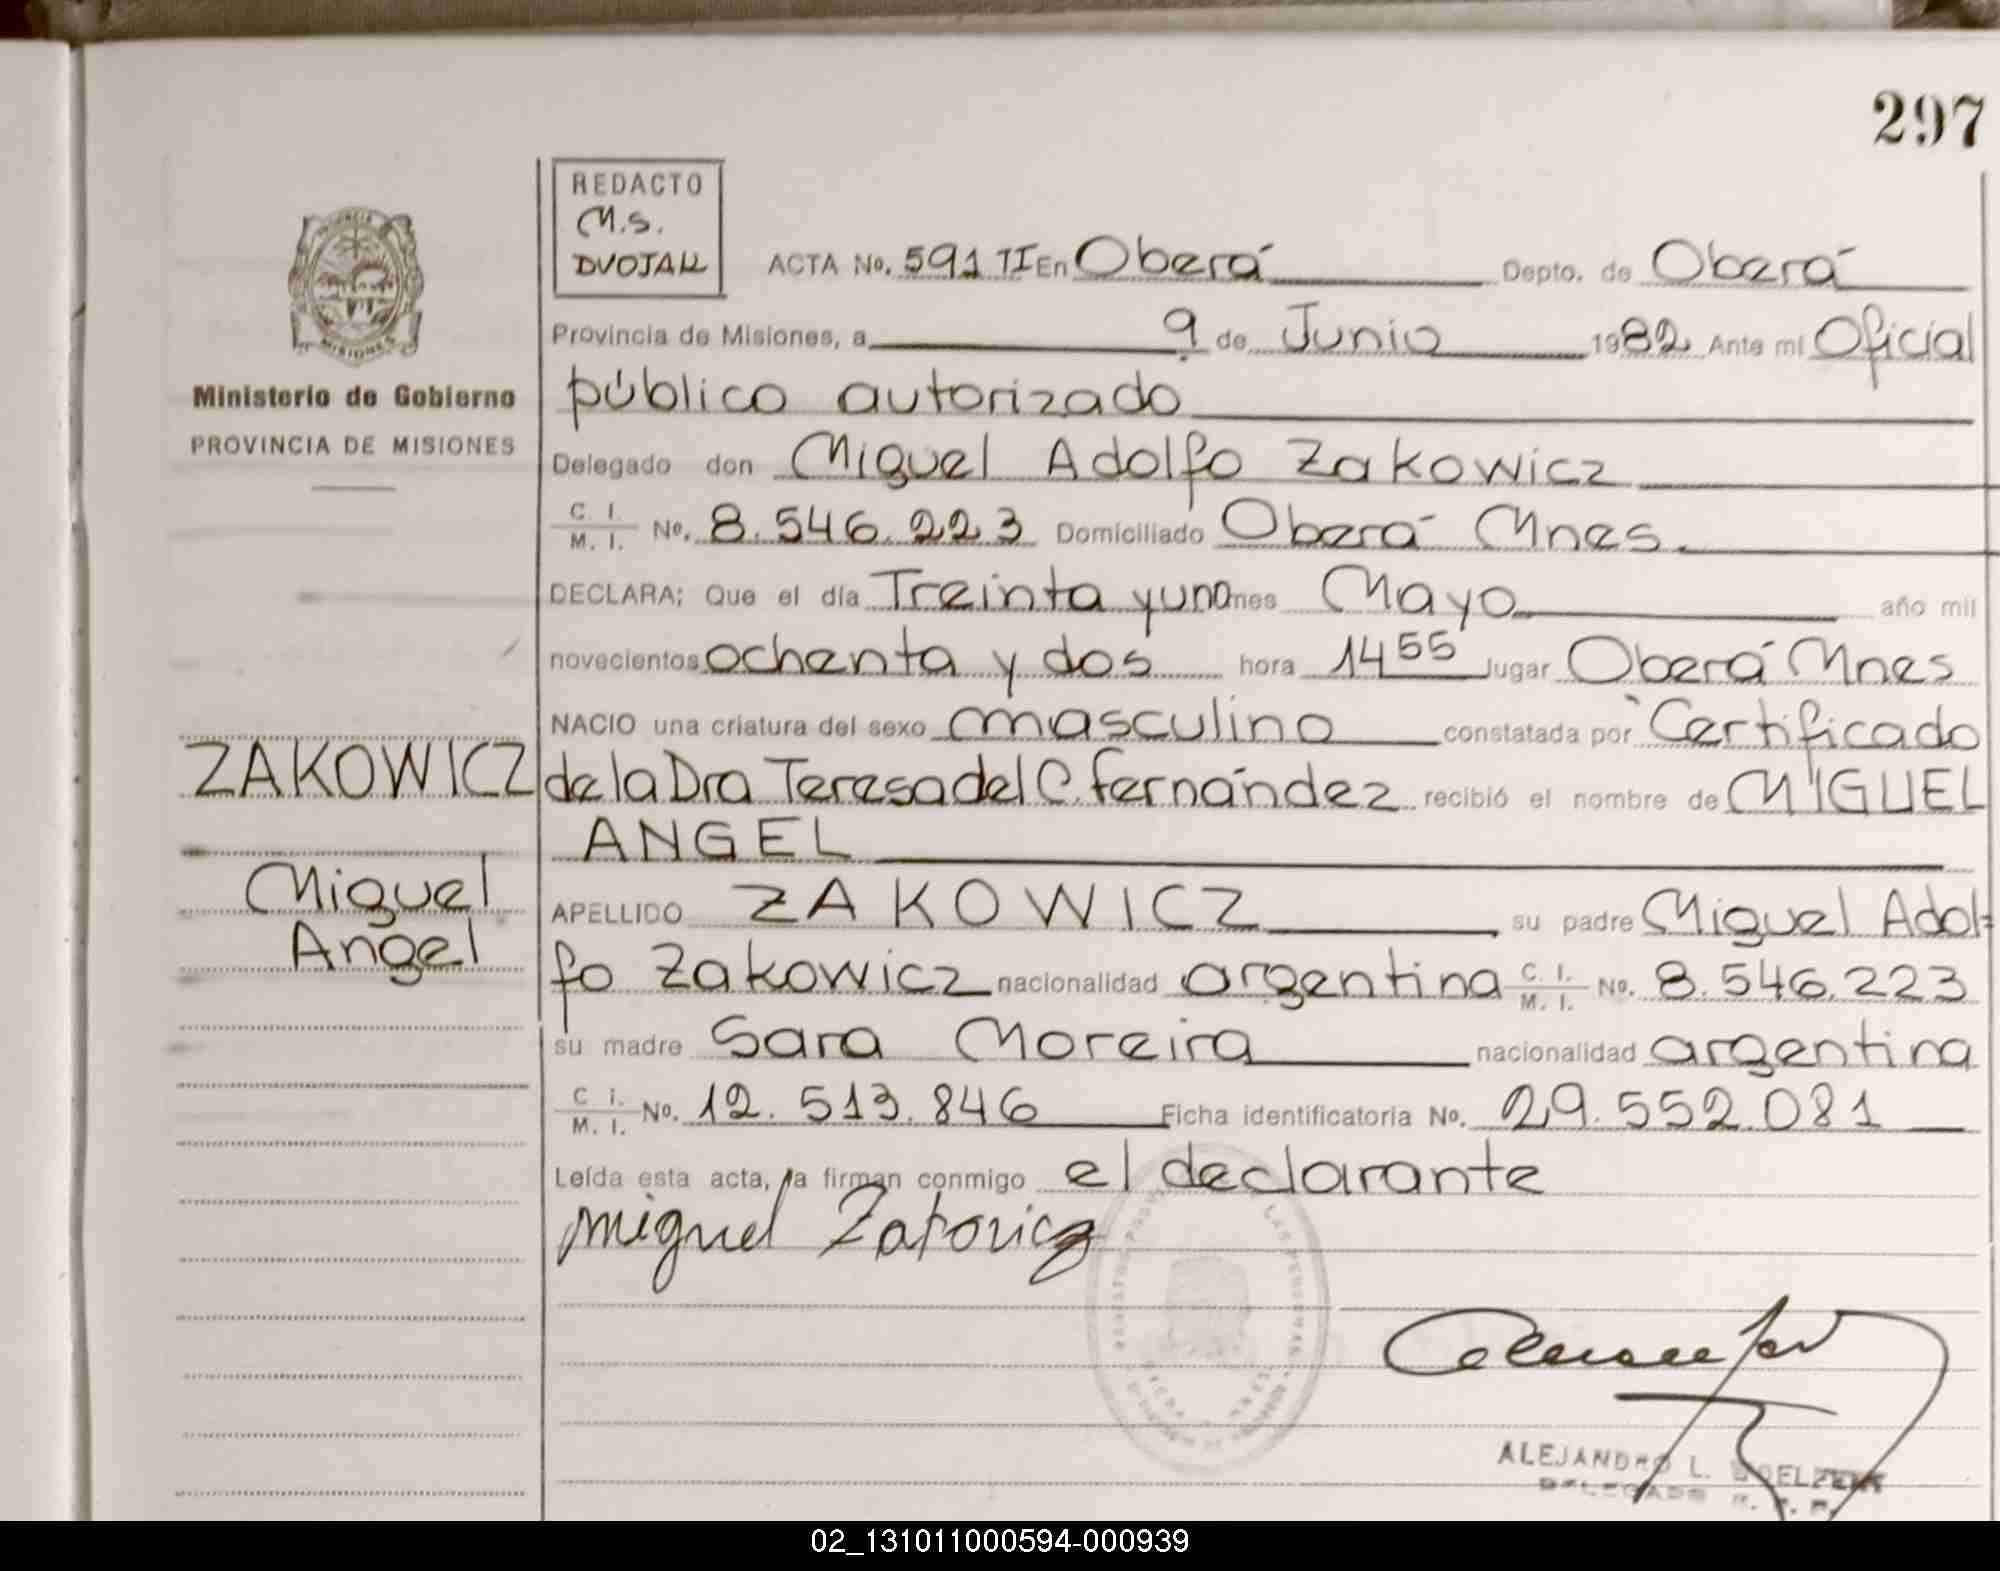 297
REDACTO
M.S.
DVOJAK
ACTA No. 591 TI En Oberá Depto. de Oberá
Provincia de Misiones, a 9 de Junio 1982 Ante mi Oficial
público autorizado
Delegado don Miguel Adolfo Zakowicz
C. I. M. I. No. 8.546.223 Domiciliado Oberá Mnes.
DECLARA; Que el día Treinta y uno mes Mayo año mil
novecientos ochenta y dos hora 14 55 lugar Oberá Mnes
NACIO una criatura del sexo masculino constatada por Certificado
de la Dra Teresa del C. Fernández recibió el nombre de MIGUEL
ANGEL
APELLIDO ZAKOWICZ su padre Miguel Adol=
fo Zakowicz nacionalidad argentina C. I. M. I. No. 8.546.223
su madre Sara Moreira nacionalidad argentina
C. I. M. I. No. 12.513.846 Ficha identificatoria No. 29.552.081
Leída esta acta, la firman conmigo el declarante
Miguel Zakovicz
ALEJANDRO L.
DELEGADO
MISIONES
Ministerio de Gobierno
PROVINCIA DE MISIONES
ZAKOWICZ
Miguel
Angel
02_131011000594-000939